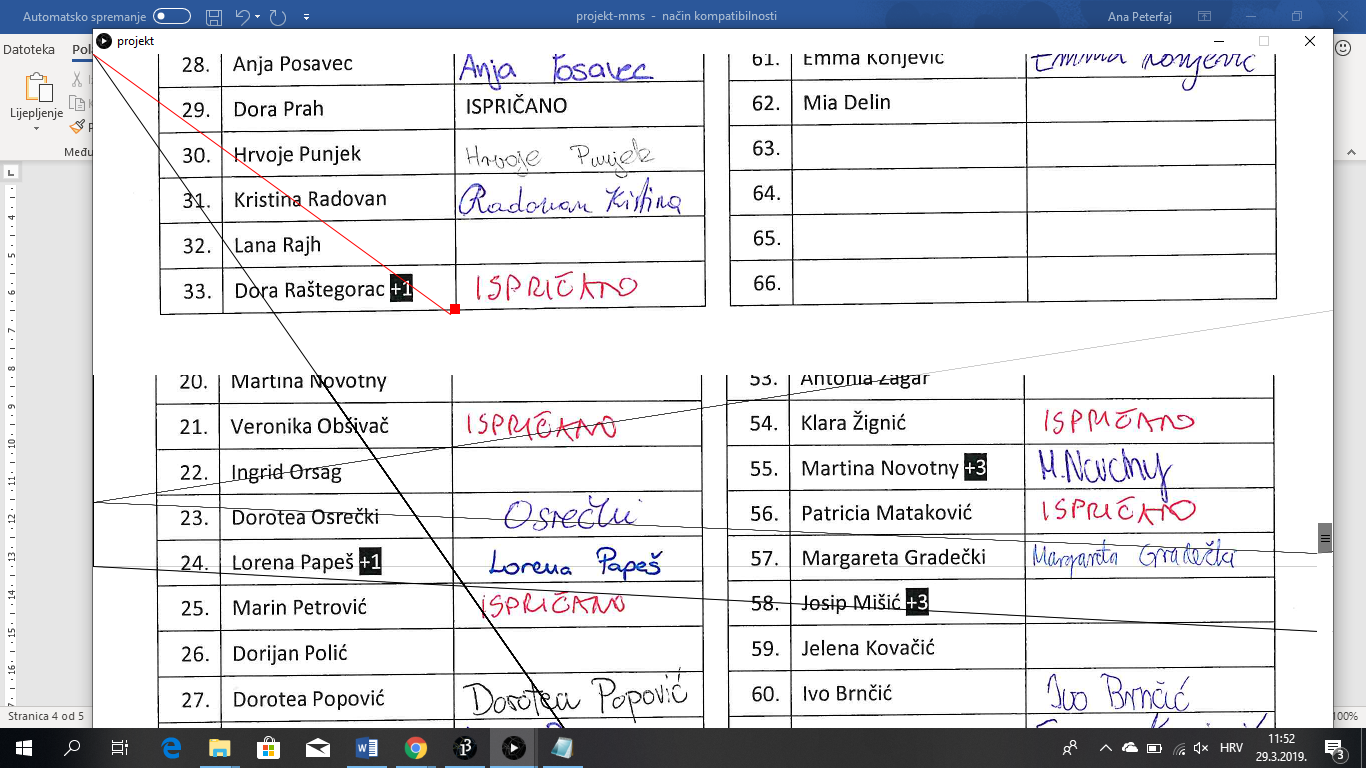 Automatsko spremanje projekt-mms - način kompatibilnosti Ana Peterfaj
projekt
Datoteka
Lijepljenje
28. Anja Posavec Anja Posavec
29. Dora Prah ISPRIČANO
30. Hrvoje Punjek Hrvoje Punjek
31. Kristina Radovan Radovan Kristina
32. Lana Rajh
33. Dora Raštegorac +1 ISPRIČANO
61. Emma Konjević Emma Konjević
62. Mia Delin
63.
64.
65.
66.
20. Martina Novotny
21. Veronika Obšivač ISPRIČANO
22. Ingrid Orsag
23. Dorotea Osrečki Osrečki
24. Lorena Papeš +1 Lorena Papeš
25. Marin Petrović ISPRIČANO
26. Dorijan Polić
27. Dorotea Popović Dorotea Popović
53. Antonia Žagar
54. Klara Žignić ISPRIČANO
55. Martina Novotny +3 M. Novotny
56. Patricia Mataković ISPRIČANO
57. Margareta Gradečki Margareta Gradečki
58. Josip Mišić +3
59. Jelena Kovačić
60. Ivo Brnčić Ivo Brnčić
Stranica 4 od 5
100%
HRV
11:52
29.3.2019.
3